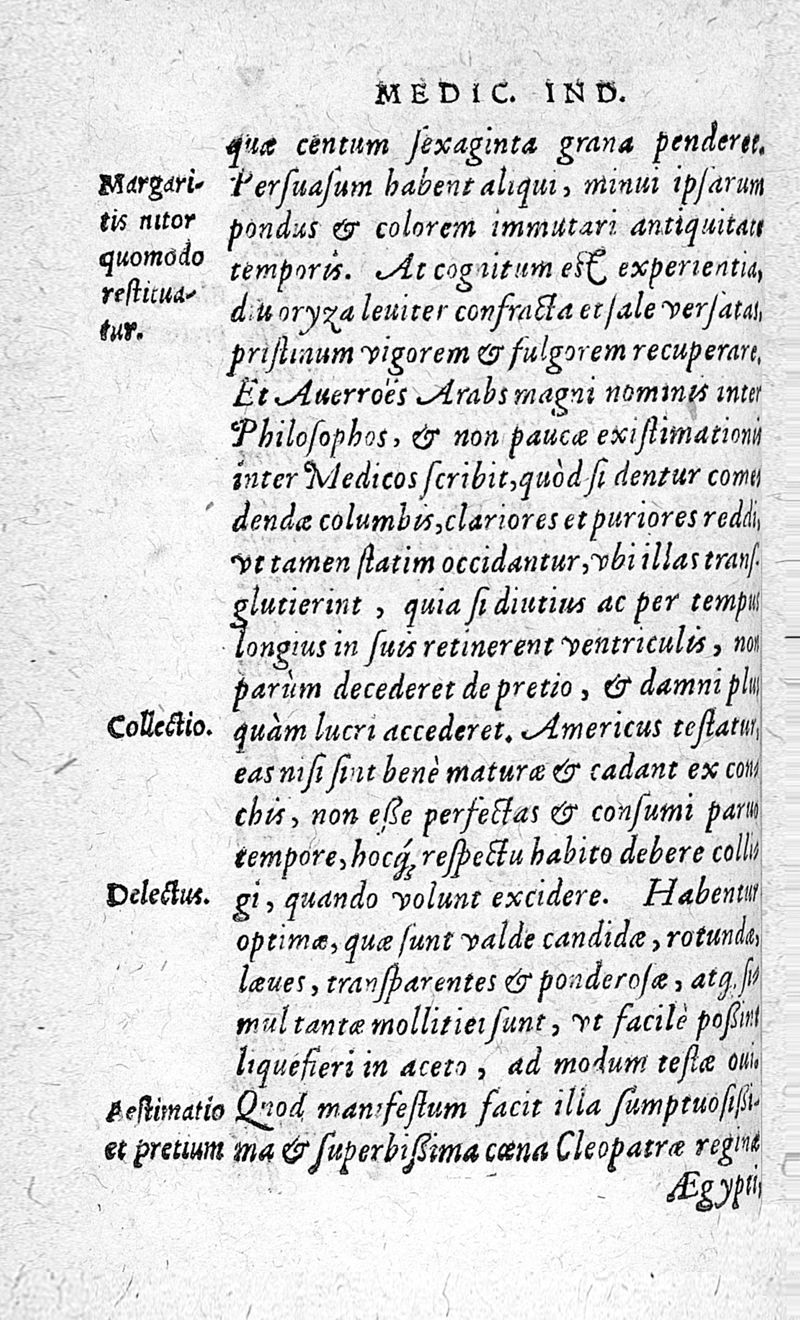 MEDIC. IND.
quæ centum ſexaginta grana penderet.
Margari-
tis nitor
quomodo
reſtitua-
tur.
Perſuaſum habent aliqui, minui ipſarum
pondus & colorem immutari antiquitate
temporis. At cognitum eſt experientia,
diu oryza leuiter confracta et ſale verſatas,
priſtinum vigorem & fulgorem recuperare.
Et Auerroës Arabs magni nominis inter
Philoſophos, & non paucæ exiſtimationis
inter Medicos ſcribit, quòd ſi dentur come-
dendæ columbis, clariores et puriores reddi,
vt tamen ſtatim occidantur, vbi illas tranſ-
glutierint, quia ſi diutius ac per tempus
longius in ſuis retinerent ventriculis, non
parùm decederet de pretio, & damni plus
Collectio.
quàm lucri accederet. Americus teſtatur,
eas niſi ſint benè maturæ & cadant ex con-
chis, non eße perfectas & conſumi paruo
tempore, hocq́; reſpectu habito debere colli-
Delectus.
gi, quando volunt excidere. Habentur
optimæ, quæ ſunt valde candidæ, rotundæ,
læues, tranſparentes & ponderoſæ, atq; ſi-
mul tantæ mollitiei ſunt, vt facilè poßint
liquefieri in aceto, ad modum teſtæ oui.
Aeſtimatio
et pretium
Quod manifeſtum facit illa ſumptuoſißi-
ma & ſuperbißima cœna Cleopatræ reginæ
Ægypti,